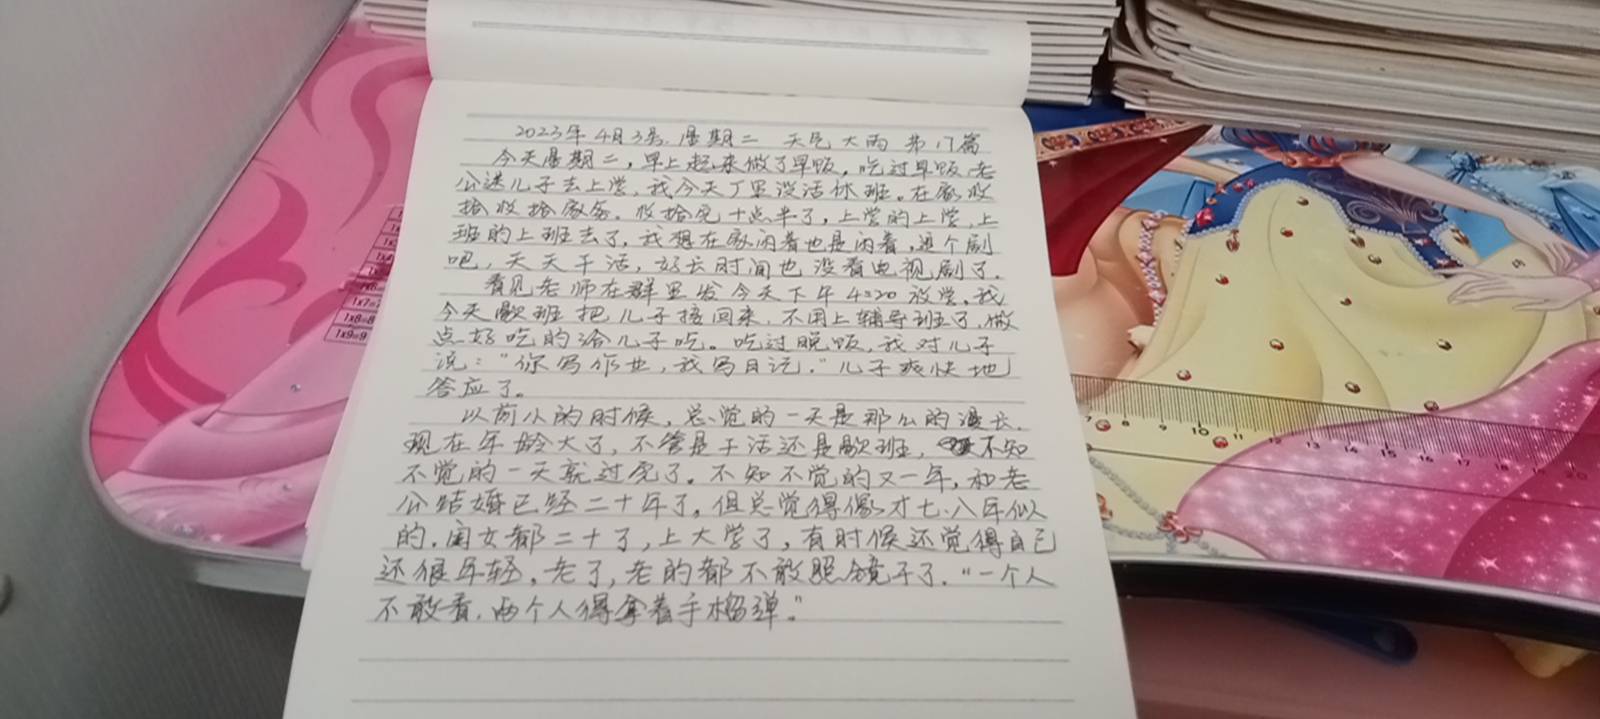 2023年4月3号.星期二 天气大雨 第17篇
今天星期二,早上起来做了早饭,吃过早饭老
公送儿子去上学,我今天丁里没活休班。在家收
拾收拾家务。收拾完十点半了,上学的上学,上
班的上班去了,我想在家闲着也是闲着,追个剧
吧,天天干活,好长时间也没看电视剧了.
看见老师在群里发今天下午4:20放学.我
今天歇班把儿子接回来.不用上辅导班了,做
点好吃的给儿子吃。吃过晚饭,我对儿子
说:"你写作业,我写日记."儿子爽快地
答应了。
以前小的时候,总觉的一天是那么的漫长.
现在年龄大了,不管是干活还是歇班,不知
不觉的一天就过完了。不知不觉的又一年,和老
公结婚已经二十年了,但总觉得像才七、八年似
的.闺女都二十了,上大学了,有时候还觉得自己
还很年轻。老了,老的都不敢照镜子了."一个人
不敢看,两个人得拿着手榴弹。"
1x7=7
1x8=8
1x9=9
7 8 9 10 11 12 13 14 15 16 17 18 19 20